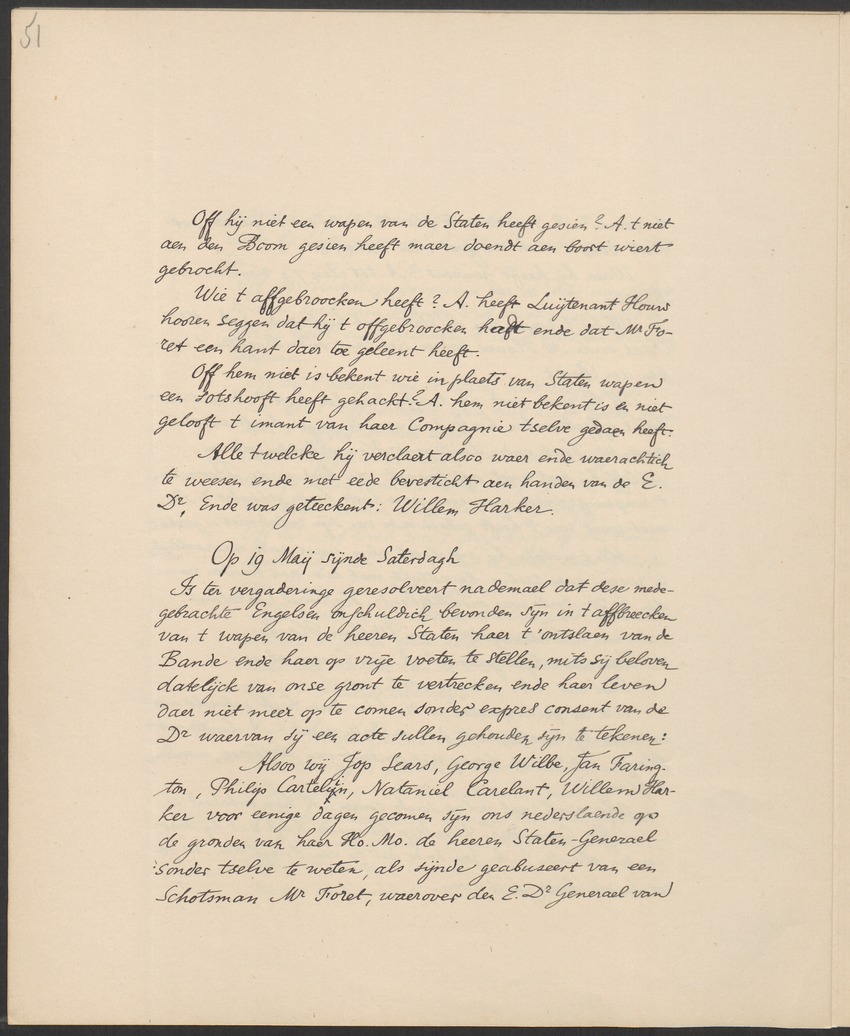 51
Off hij niet een wapen van de Staten heeft gesien? A. t niet
aen den Boom gesien heeft maer doendt aen boort wiert
gebrocht.
Wie t affgebroocken heeft? A. heeft Luijtenant Houw
hooren seggen dat hij t offgebroocken heeft ende dat Mr Fo-
ret een hant daer toe geleent heeft.
Off hem niet is bekent wie in plaets van Staten wapen
een sotshooft heeft gehackt? A. hem niet bekent is en niet
gelooft t imant van haer Compagnie tselve gedaen heeft.
Alle twelcke hij verclaert alsoo waer ende waerachtich
te weesen ende met eede bevesticht aen handen van de E.
Dr. Ende was geteeckent: Willem Harker.
Op 19 Maij sijnde Saterdagh
Is ter vergaderinge geresolveert nademael dat dese mede-
gebrachte Engelsen onschuldich bevonden sijn in t affbreecken
van t wapen van de heeren Staten haer t'ontslaen van de
Bande ende haer op vrije voeten te stellen, mits sij beloven
datelijck van onse gront te vertrecken ende haer leven
daer niet meer op te comen sonder expres consent van de
Dr waervan sij een acte sullen gehouden sijn te tekenen:
Alsoo wij Jop Sears, George Wilbe, Jan Faring-
ton, Philijs Cartelijn, Nataniel Carelant, Willem Har-
ker voor eenige dagen gecomen sijn ons nederslaende op
de gronden van haer Ho. Mo. de heeren Staten-Generael
sonder tselve te weten, als sijnde geabuseert van een
Schotsman Mr Foret, waerover den E. Dr Generael van